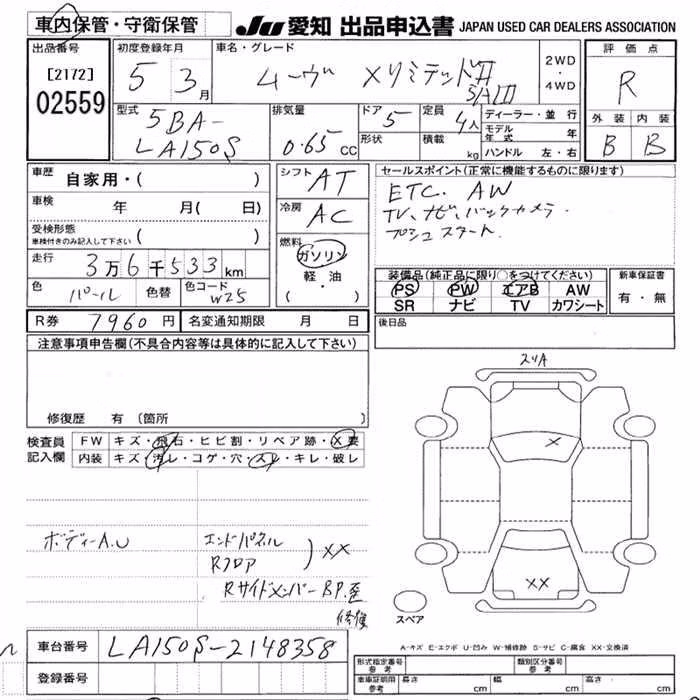 車内保管・守衛保管
JU 愛知 出品申込書 JAPAN USED CAR DEALERS ASSOCIATION
出品番号
[2172]
02559
初度登録年月
5 3月
車名・グレード
ムーヴ XリミテッドII
SAIII
2WD
・
4WD
評価点
R
外装 内装
B B
型式
5BA-
LA150S
排気量
0.65 CC
ドア 5
形状
定員 4人
積載 kg
ディーラー・並行
モデル年式 年
ハンドル 左・右
車歴 自家用・( )
車検 年 月( 日)
受検形態
車検付きのみ記入して下さい ( )
走行 3万6千533km
色 パール 色替 色コード W25
シフト AT
冷房 AC
燃料
ガソリン
軽・油
( ・ )
セールスポイント(正常に機能するものに限ります)
ETC. AW
TV、ナビ、バックカメラ.
プッシュスタート.
装備品(純正品に限り○をつけてください)
PS PW エアB AW
SR ナビ TV カワシート
新車保証書
有・無
後日品
R券 7960円 名変通知期限 月 日
注意事項申告欄(不具合内容等は具体的に記入して下さい)
修復歴 有 〔箇所 〕
検査員
記入欄
FW キズ・飛石・ヒビ割・リペア跡・X要
内装 キズ・汚レ・コゲ・穴・スレ・キレ・破レ
ボディーA.U
エンドパネル
Rフロア
) XX
RサイドメンバーBP.歪
修傷
スリA
X
XX
スペア
A-キズ E-エクボ U-凹み W-補修跡 S-サビ C-腐食 XX-交換済
車台番号 LA150S-2148358
登録番号
形式指定番号
参考
類別区分番号
参考
車庫証明用
参考
長さ cm 幅 cm 高さ cm